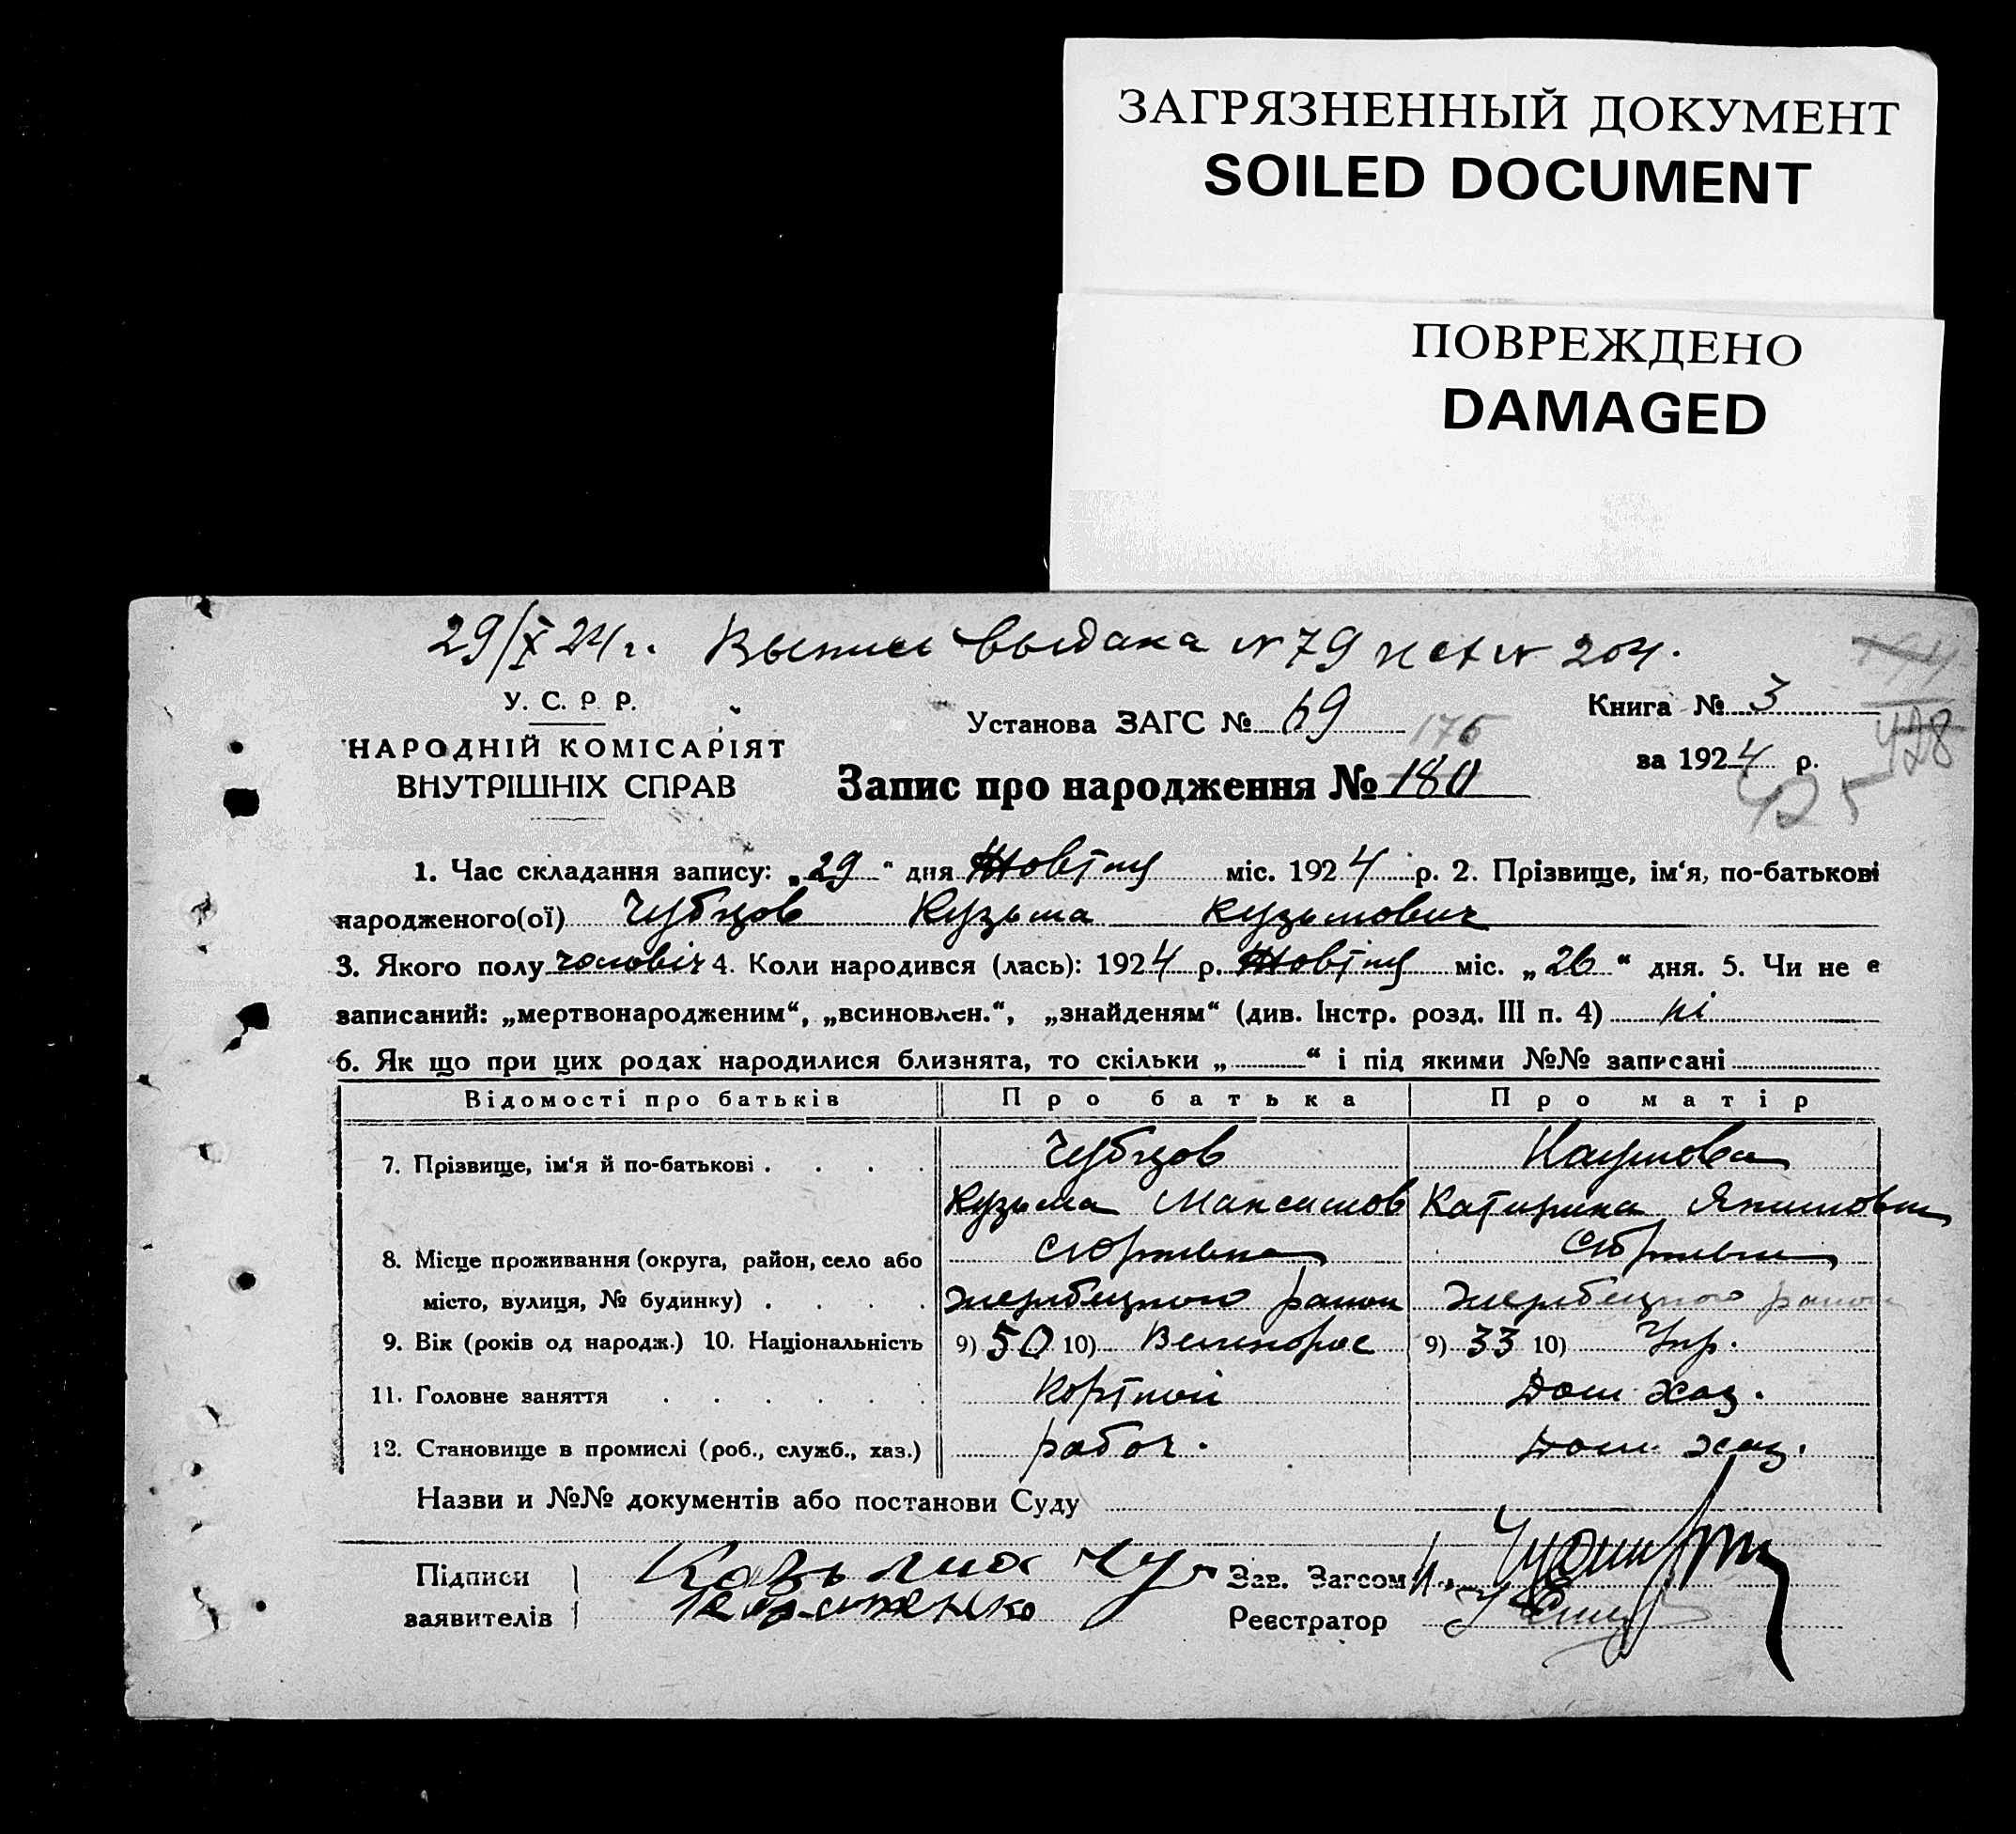 ЗАГРЯЗНЕННЫЙ ДОКУМЕНТ
SOILED DOCUMENT
ПОВРЕЖДЕНО
DAMAGED
29/X 24 г. Выпись выдана N 79 N 204.
У. С. Р. Р.
НАРОДНІЙ КОМІСАРІЯТ
ВНУТРІШНІХ СПРАВ
Установа ЗАГС № 69
Книга № 3
за 1924 р.
176
Запис про народження № 180
428
425
1. Час складання запису: „29“ дня Жовтня міс. 1924 р. 2. Прізвище, ім‘я, по-батькові
народженого(ої) Чубцов Кузьма Кузьмович
3. Якого полу чоловіч 4. Коли народився (лась): 1924 р. Жовтня міс. „26“ дня. 5. Чи не є
записаний: „мертвонародженим“, „всиновлен.“, „знайденям“ (див. Інстр. розд. III п. 4) ні
6. Як що при цих родах народилися близнята, то скільки „ “ і під якими №№ записані
Відомості про батьків Про батька Про матір
7. Прізвище, ім‘я й по-батькові . . . . Чубцов Наумова
Кузьма Максимов Катирина
8. Місце проживання (округа, район, село або
місто, вулиця, № будинку) . . . . Жеребецкого район Жеребецкого район
9. Вік (років од народж.) 10. Національність 9) 50 10) Великорос 9) 33 10) Укр.
11. Головне заняття . . . . . . Дом. хаз.
12. Становище в промислі (роб., служб., хаз.) рабоч. Дом. хаз.
Назви и №№ документів або постанови Суду
Підписи Козьма Чу Зав. Загсом
заявителів Реєстратор